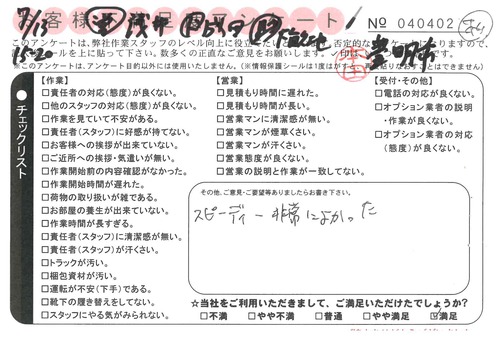 お客様満足アンケート
No 040402
このアンケートは、弊社作業スタッフのレベル向上に役立
7/13
15-20
【作業】
□責任者の対応(態度)が良くない。
□他のスタッフの対応(態度)が良くない。
□作業を見ていて不安がある。
□責任者(スタッフ)に好感が持てない。
□お客様への挨拶が出来ていない。
□ご近所への挨拶・気遣いが無い。
□作業開始前の内容確認がなかった。
□作業開始時間が遅れた。
□荷物の取り扱いが雑である。
□お部屋の養生が出来ていない。
□作業時間が長すぎる。
□責任者(スタッフ)に清潔感が無い。
□責任者(スタッフ)が汗くさい。
□トラックが汚い。
□梱包資材が汚い。
□運転が不安(下手)である。
□靴下の履き替えをしてない。
□スタッフにやる気がみられない。
【営業】
□見積もり時間に遅れた。
□見積もり時間が長い。
□営業マンに清潔感が無い。
□営業マンが煙草くさい。
□営業マンが汗くさい。
□営業態度が良くない。
□営業の説明と作業が一致してない。
【受付・その他】
□電話の対応が良くない。
□オプション業者の説明
・作業が良くない。
□オプション業者の対応
(態度)が良くない。
●チェックリスト
その他、ご意見・ご要望等ありましたらお書き下さい。
スピーディー 非常によかった
☆当社をご利用いただきまして、ご満足いただけたでしょうか?
□不満 □やや不満 □普通 □やや満足 ☑満足